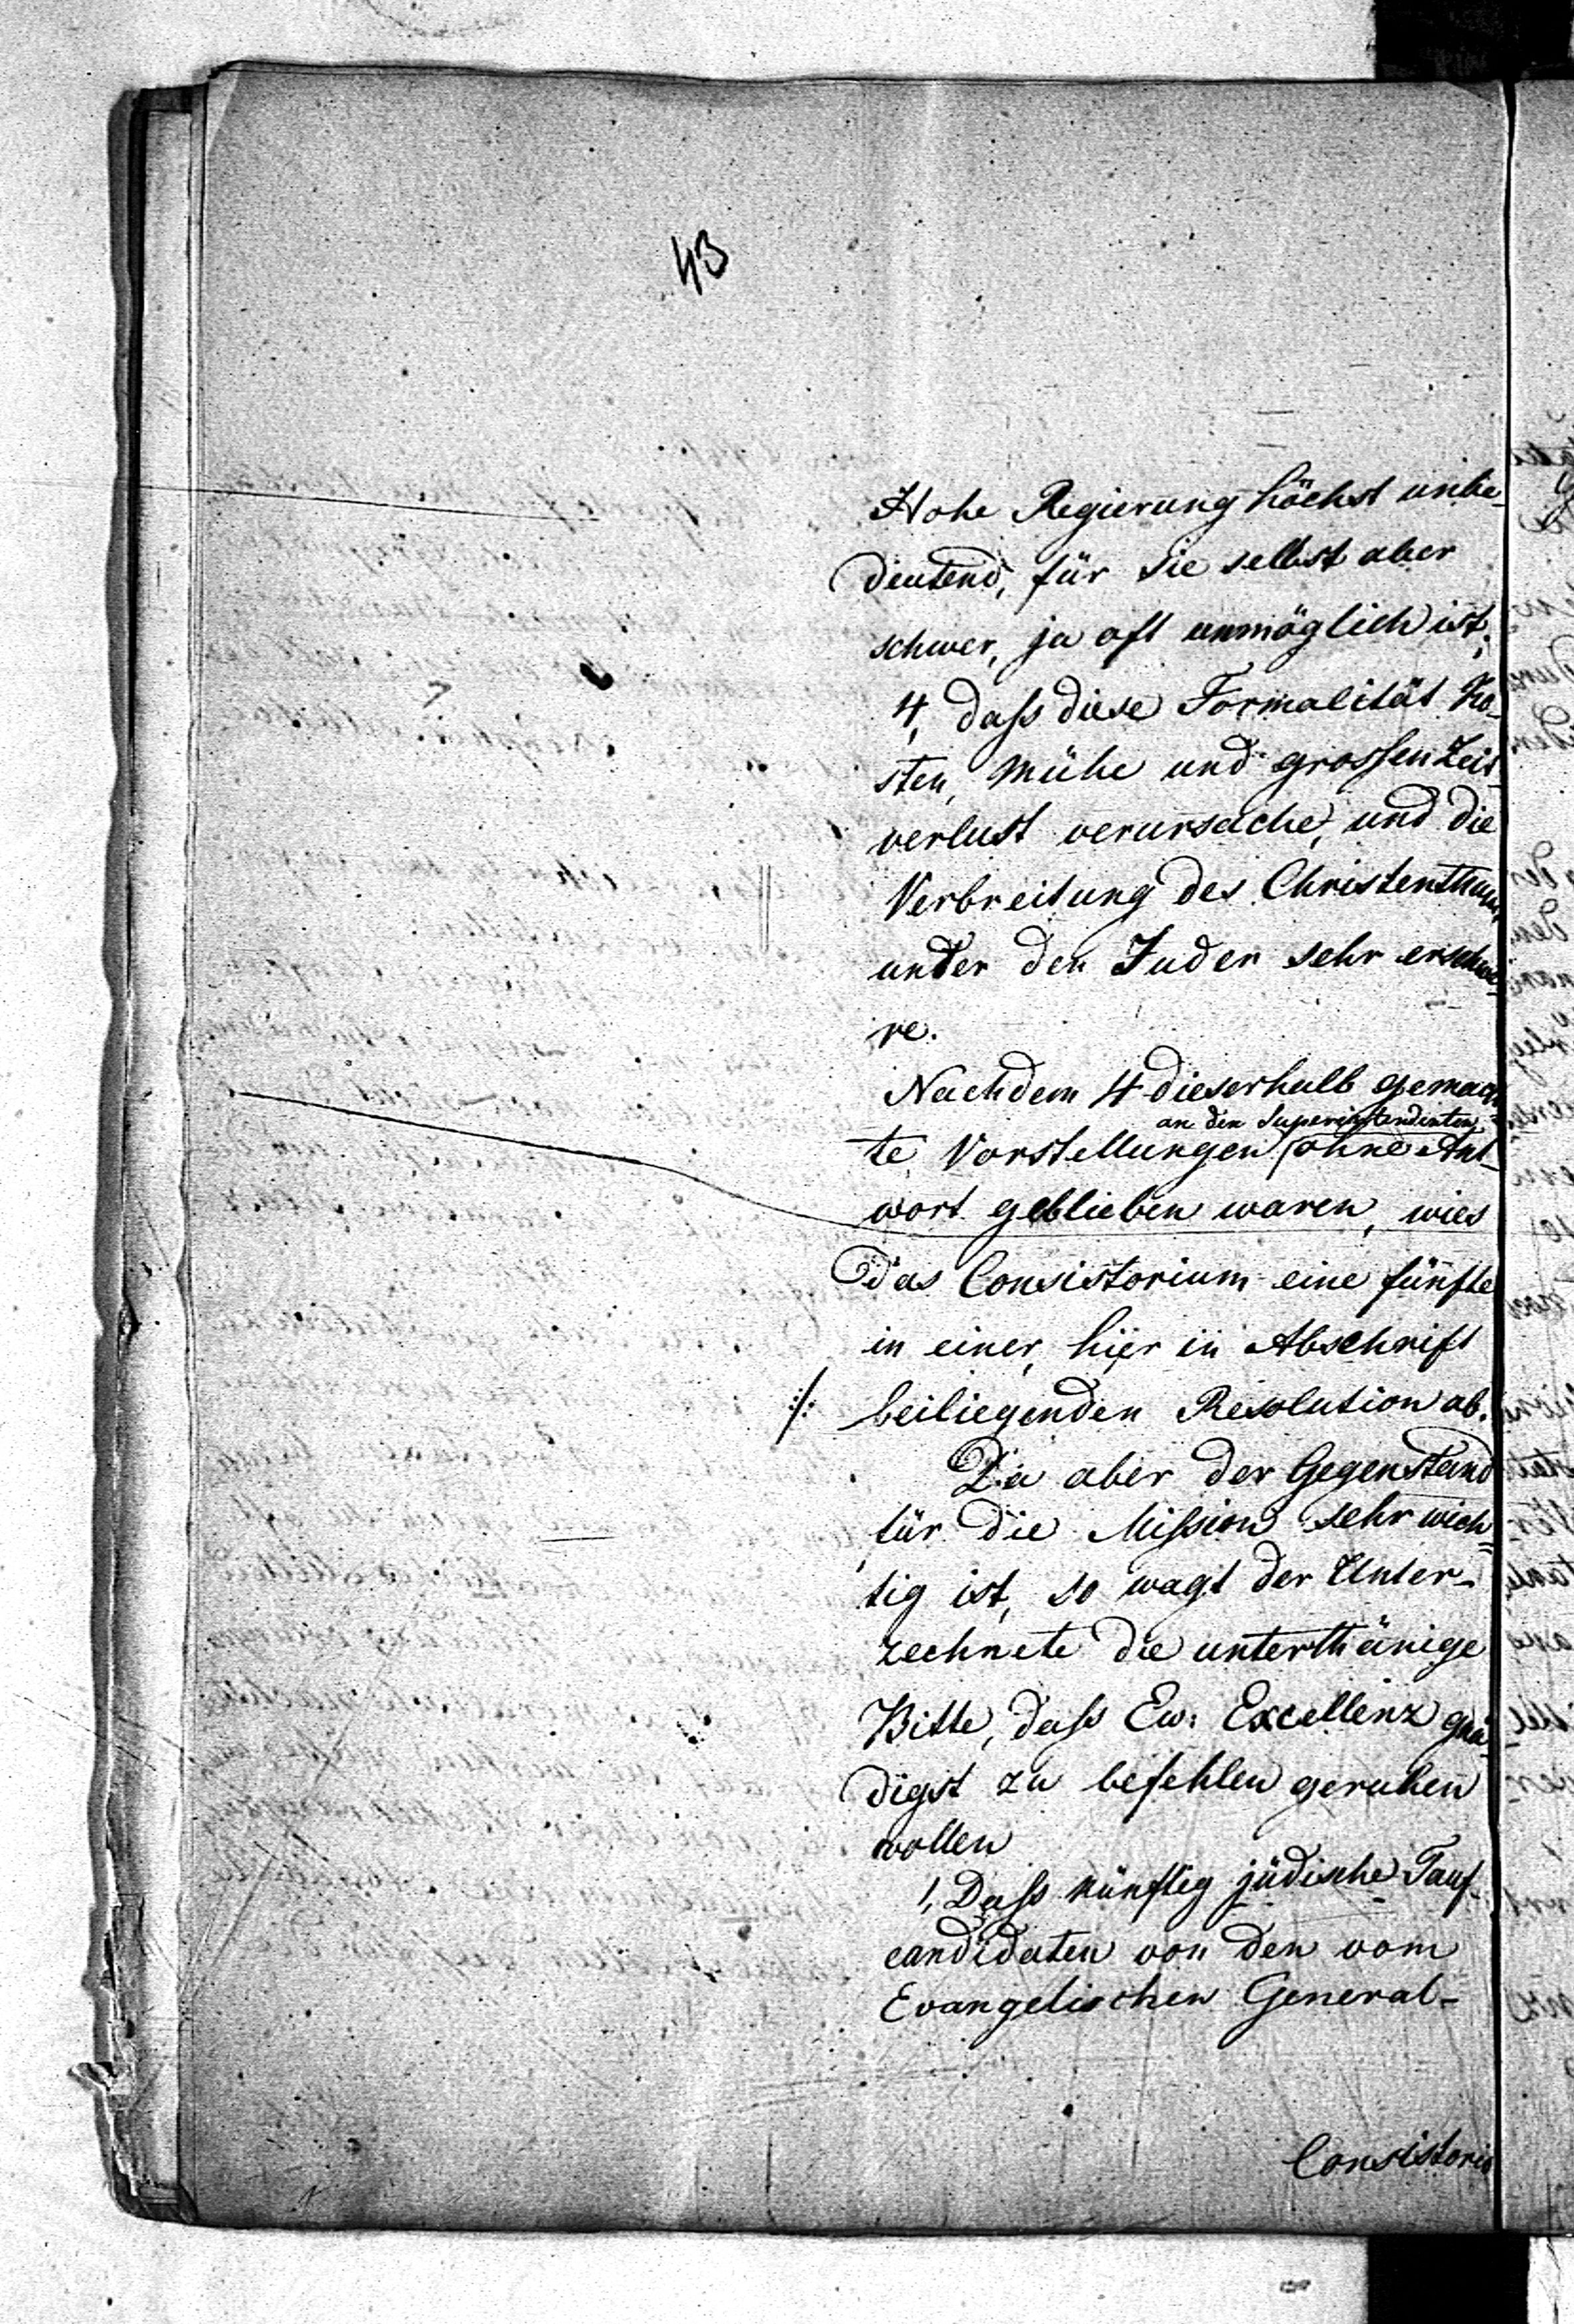 43
Hohe Regierung höchst unbe-
deutend, für sie selbst aber
schwer, ja oft unmöglich ist;
4, daß diese Formalität Ko-
sten, Mühe und großen Zeit-
verlust verursache, und die
Verbreitung des Christenthums
unter den Juden sehr erschwe-
re.
Nachdem 4 dieserhalb gemach-
an den Superintendenten
te Vorstellungen ohne Ant-
wort geblieben waren, wies
das Consistorium eine fünfte
in einer, hier in Abschrift
·/· beiliegenden Resolution ab.
Da aber der Gegenstand
für die Mission sehr wich-
tig ist, so wagt der Unter-
zechnete die unterthänige
Bitte, daß Ew: Excellenz gnä-
digst zu befehlen geruhen
wollen
1, Daß künftig jüdische Tauf-
candidaten von den vom
Evangelischen General-
Consistorio